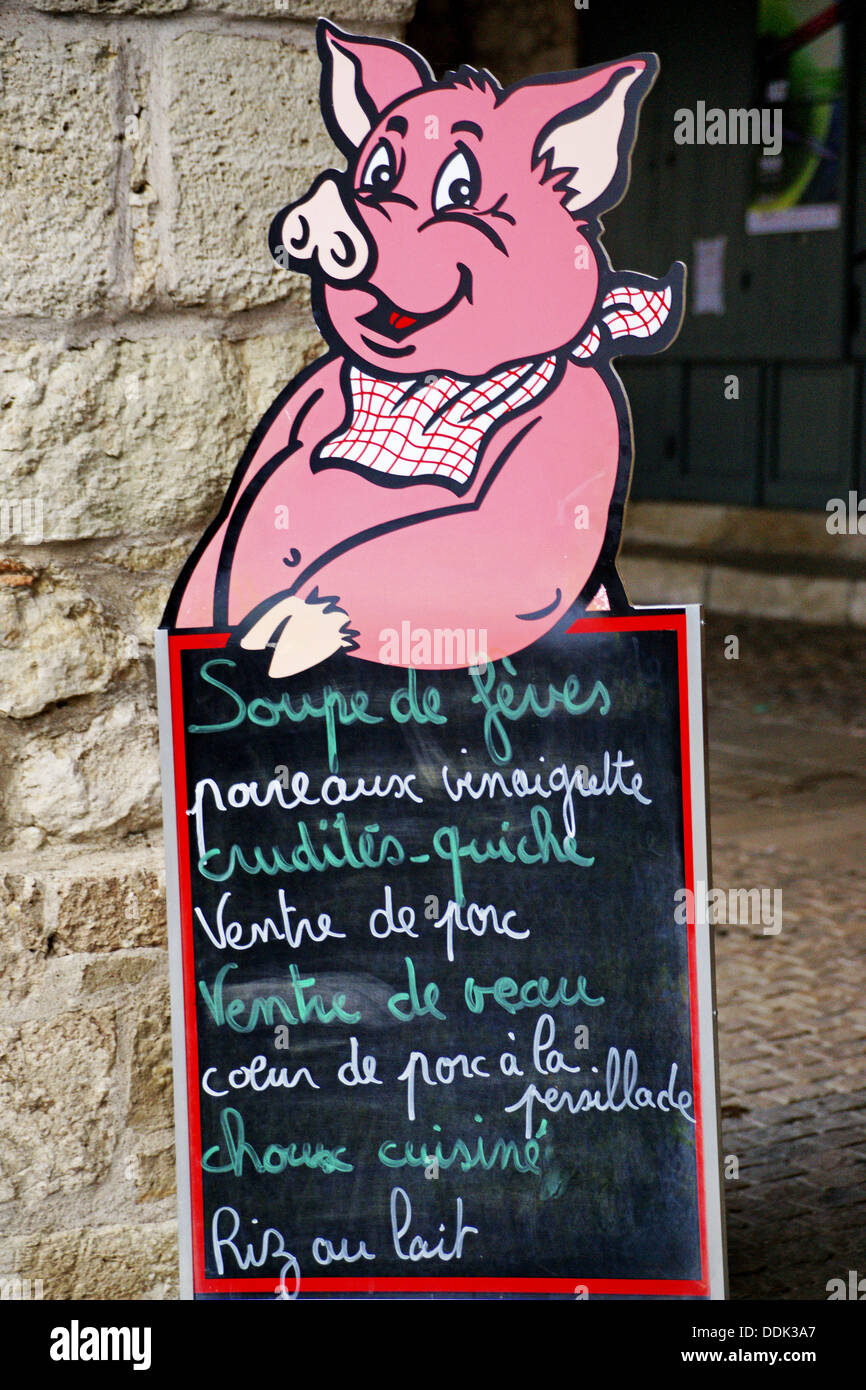 Soupe de fèves
poireaux vinaigrette
crudités-quiche
Ventre de porc
Ventre de veau
coeur de porc à la
persillade
choux cuisiné
Riz au lait
alamy
Image ID: DDK3A7
www.alamy.com